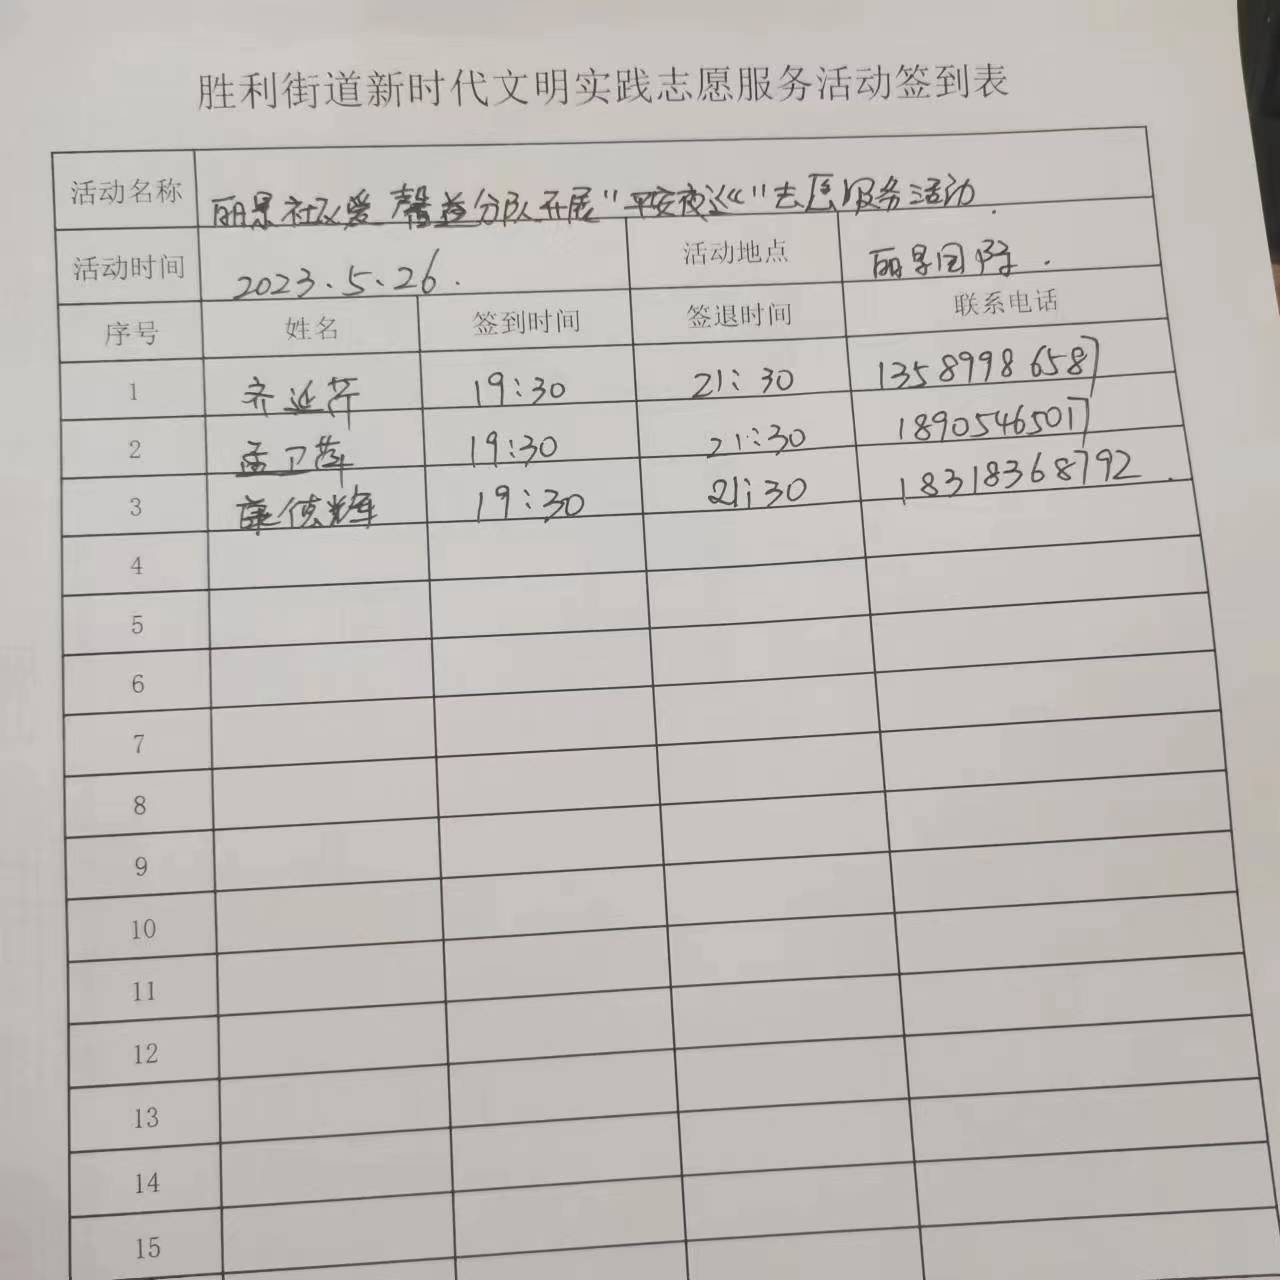 胜利街道新时代文明实践志愿服务活动签到表
活动名称 丽景社区爱馨益分队开展"平安夜巡"志愿服务活动.
活动时间 2023.5.26. 活动地点 丽景园.
序号 姓名 签到时间 签退时间 联系电话
1 齐延芹 19:30 21:30 13589986587
2 孟卫萍 19:30 21:30 18905465017
3 康德辉 19:30 21:30 18318368792.
4
5
6
7
8
9
10
11
12
13
14
15